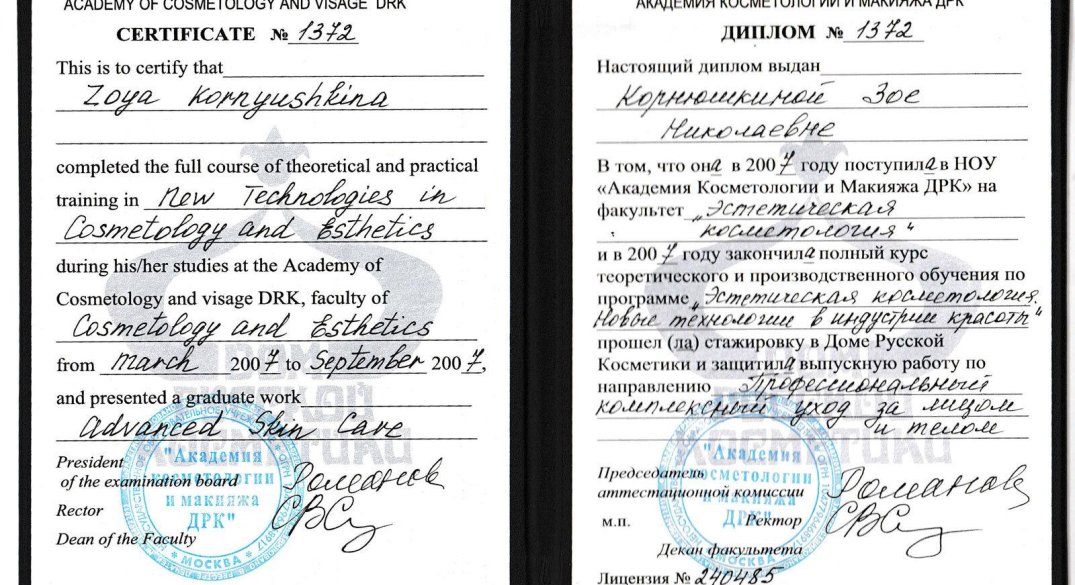 ACADEMY OF COSMETOLOGY AND VISAGE DRK
CERTIFICATE № 1372
This is to certify that
Zoya Kornyushkina
completed the full course of theoretical and practical
training in New Technologies in
Cosmetology and Esthetics
during his/her studies at the Academy of
Cosmetology and visage DRK, faculty of
Cosmetology and Esthetics
from march 2007 to September 2007,
and presented a graduate work
Advanced Skin Care
President
of the examination board
Rector
Dean of the Faculty
"Академия
косметологии
и макияжа
ДРК"
МОСКВА
ДОМ
РУССКОЙ
КОСМЕТИКИ
АКАДЕМИЯ КОСМЕТОЛОГИИ И МАКИЯЖА ДРК
ДИПЛОМ № 1372
Настоящий диплом выдан
Корнюшкиной Зое
Николаевне
В том, что она в 2007 году поступила в НОУ
«Академия Косметологии и Макияжа ДРК» на
факультет „Эстетическая
косметология“
и в 2007 году закончила полный курс
теоретического и производственного обучения по
программе „Эстетическая косметология.
Новые технологии в индустрии красоты“
прошел (ла) стажировку в Доме Русской
Косметики и защитила выпускную работу по
направлению Профессиональный
комплексный уход за лицом
и телом
Председатель
аттестационной комиссии
м.п. Ректор
Декан факультета
Лицензия № 240485
"Академия
косметологии
и макияжа
ДРК"
МОСКВА
ДОМ
РУССКОЙ
КОСМЕТИКИ